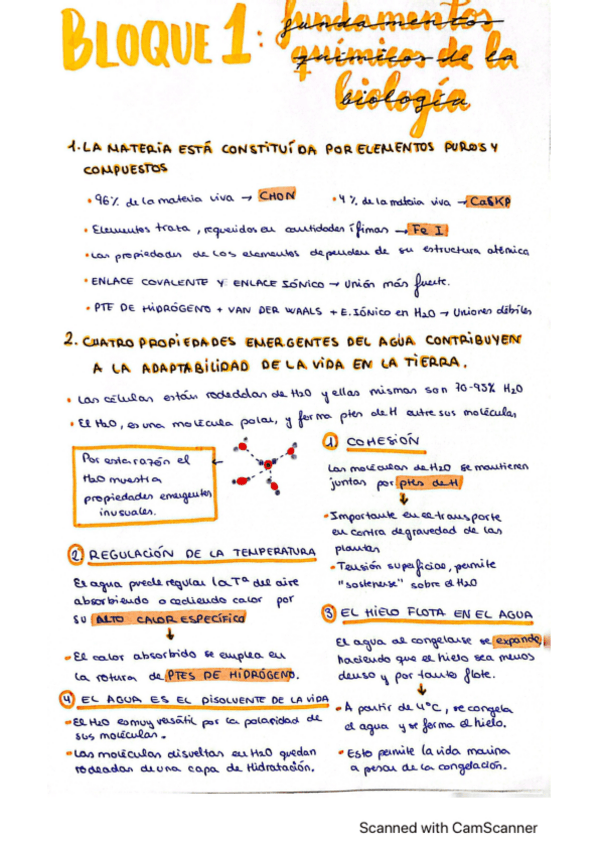 BLOQUE 1: fundamentos
químicos de la
biología
1. LA MATERIA ESTÁ CONSTITUÍDA POR ELEMENTOS PUROS Y
COMPUESTOS
• 96% de la materia viva → CHON
• 4% de la materia viva → CaSKP
• Elementos traza, requeridos en cantidades ífimas → Fe I
• Las propiedades de los elementos dependen de su estructura atómica
• ENLACE COVALENTE Y ENLACE IÓNICO → Unión más fuerte.
• PTE DE HIDRÓGENO + VAN DER WAALS + E. IÓNICO en H2O → Uniones débiles
2. CUATRO PROPIEDADES EMERGENTES DEL AGUA CONTRIBUYEN
A LA ADAPTABILIDAD DE LA VIDA EN LA TIERRA.
• Las células están rodeddas de H2O y ellas mismas son 70-95% H2O
• El H2O, es una molécula polar, y forma ptes de H entre sus moléculas
Por esta razón el
H2O muestra
propiedades emergentes
inusuales.
1) COHESIÓN
Las moléculas de H2O se mantienen
juntas por ptes de H
• Importante en el transporte
en contra de gravedad de las
plantas
• Tensión superficial, permite
"sostenerse" sobre el H2O
2) REGULACIÓN DE LA TEMPERATURA
El agua puede regular la Tª del aire
absorbiendo o cediendo calor por
su ALTO CALOR ESPECÍFICO
• El calor absorbido se emplea en
la rotura de PTES DE HIDRÓGENO.
3) EL HIELO FLOTA EN EL AGUA
El agua al congelarse se expande,
haciendo que el hielo sea menos
denso y por tanto flote.
• A partir de 4°C, se congela
el agua y se forma el hielo.
• Esto permite la vida marina
a pesar de la congelación.
4) EL AGUA ES EL DISOLVENTE DE LA VIDA
• El H2O es muy versátil por la polaridad de
sus moléculas.
• Las moléculas disueltas en H2O quedan
rodeadas de una capa de Hidratación.
Scanned with CamScanner